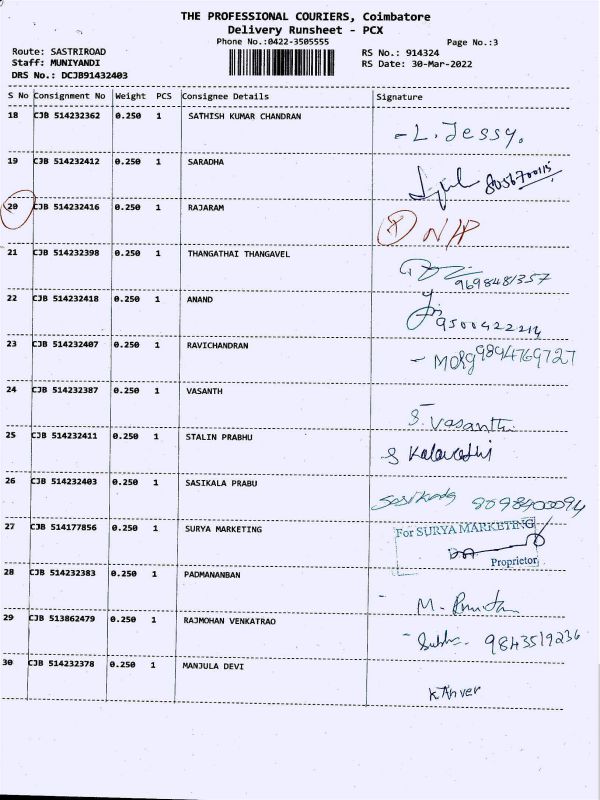 THE PROFESSIONAL COURIERS, Coimbatore
Delivery Runsheet - PCX
Phone No.:0422-3505555
Page No.:3
Route: SASTRIROAD
RS No.: 914324
Staff: MUNIYANDI
RS Date: 30-Mar-2022
DRS No.: DCJB91432403
S No Consignment No Weight PCS Consignee Details Signature
18 CJB 514232362 0.250 1 SATHISH KUMAR CHANDRAN
- L. Jessy.
19 CJB 514232412 0.250 1 SARADHA
8056700115
20 CJB 514232416 0.250 1 RAJARAM
N/P
21 CJB 514232398 0.250 1 THANGATHAI THANGAVEL
9698481357
22 CJB 514232418 0.250 1 ANAND
9500422214
23 CJB 514232407 0.250 1 RAVICHANDRAN
9894769727
24 CJB 514232387 0.250 1 VASANTH
S. Vasanthi
25 CJB 514232411 0.250 1 STALIN PRABHU
26 CJB 514232403 0.250 1 SASIKALA PRABU
8098400094
27 CJB 514177856 0.250 1 SURYA MARKETING
For SURYA MARKETING
Proprietor
28 CJB 514232383 0.250 1 PADMANANBAN
29 CJB 513862479 0.250 1 RAJMOHAN VENKATRAO
9843519236
30 CJB 514232378 0.250 1 MANJULA DEVI